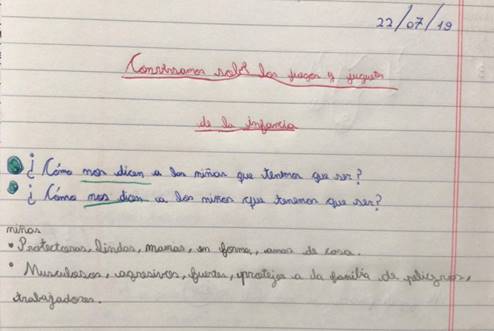 22/07/19
Conversamos sobre los juegos y juguetes
de la infancia
¿Cómo nos dicen a las niñas que tenemos que ser?
¿Cómo nos dicen a los niños que tenemos que ser?
niñas
• Protectoras, lindas, mamas, en forma, amas de casa.
• Musculosos, agresivos, fuertes, proteja a la familia de peligros,
trabajadores.